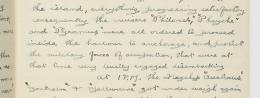 the island, everything progressing satisfactorily
consequently the cruisers "Philomel", "Psyche"
and "Pyramus" were all ordered to proceed
inside the harbour to anchorage, and protect
the military forces of occupation, that were at
that time very busily engaged disembarking
At the Flagship "Australia"
and "Melbourne" got under weigh again